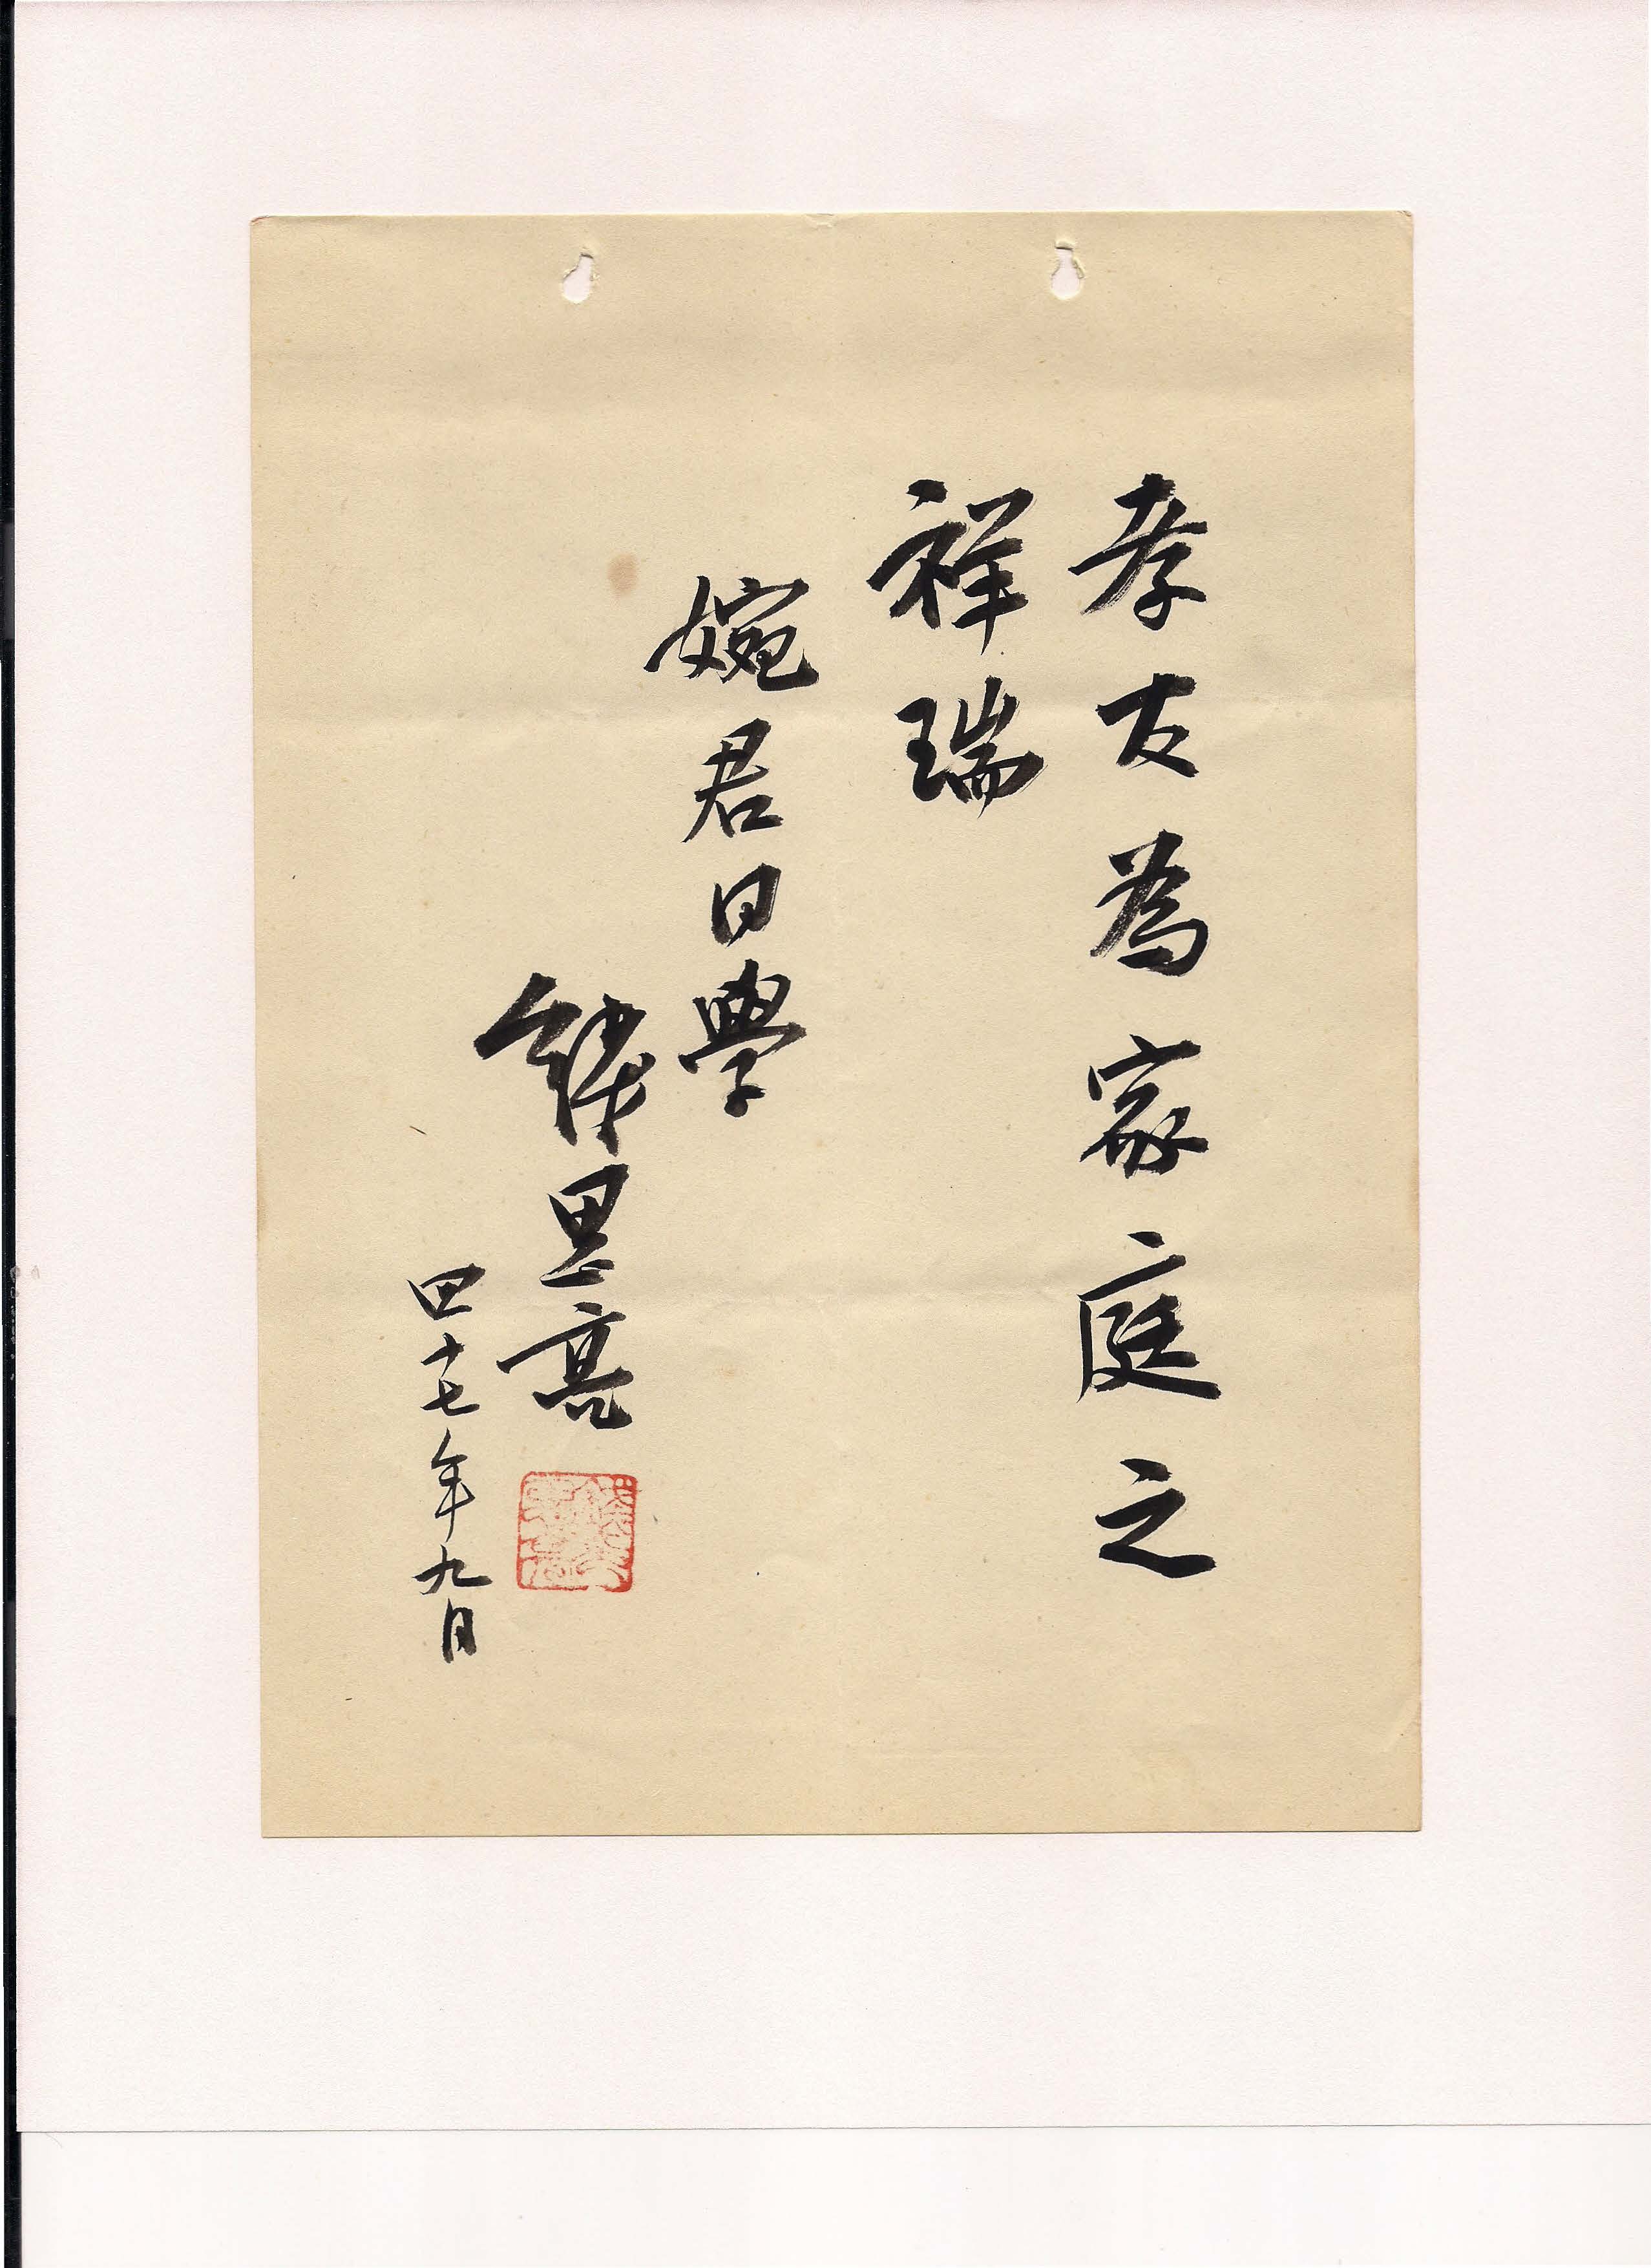 孝友為家庭之
祥瑞
婉君同學
錢思亮
四十七年九月